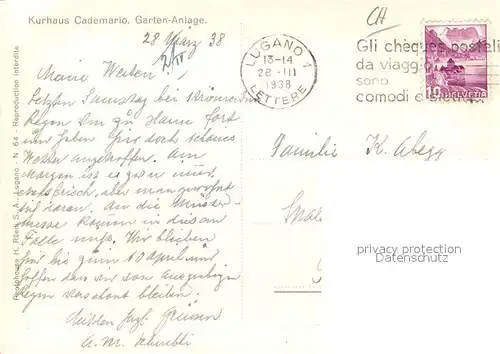 Kurhaus Cademario. Garten-Anlage.
28 März 38
CH
LUGANO 1
13-14
28 -III
1938
LETTERE
Gli chèques postali
da viaggio
sono
comodi e
10 HELVETIA
Meine Werten
Letzten Samstag bei strömendem
Regen von zu Hause fort
und haben hier doch schönes
Wetter angetroffen. Am
Morgen ist es zwar immer
etwas frisch, aber man gewöhnt
sich daran. An die Muster-
messe kommen in diesem
Falle nicht. Wir bleiben
hier bis zum 10 April und
hoffen dass wir von ausgiebigem
Regen verschont bleiben.
Grüssen
Familie K. Abegg
privacy protection
Datenschutz
Photohaus H. Rüedi S. A., Lugano - N 64 - Reproduction interdite